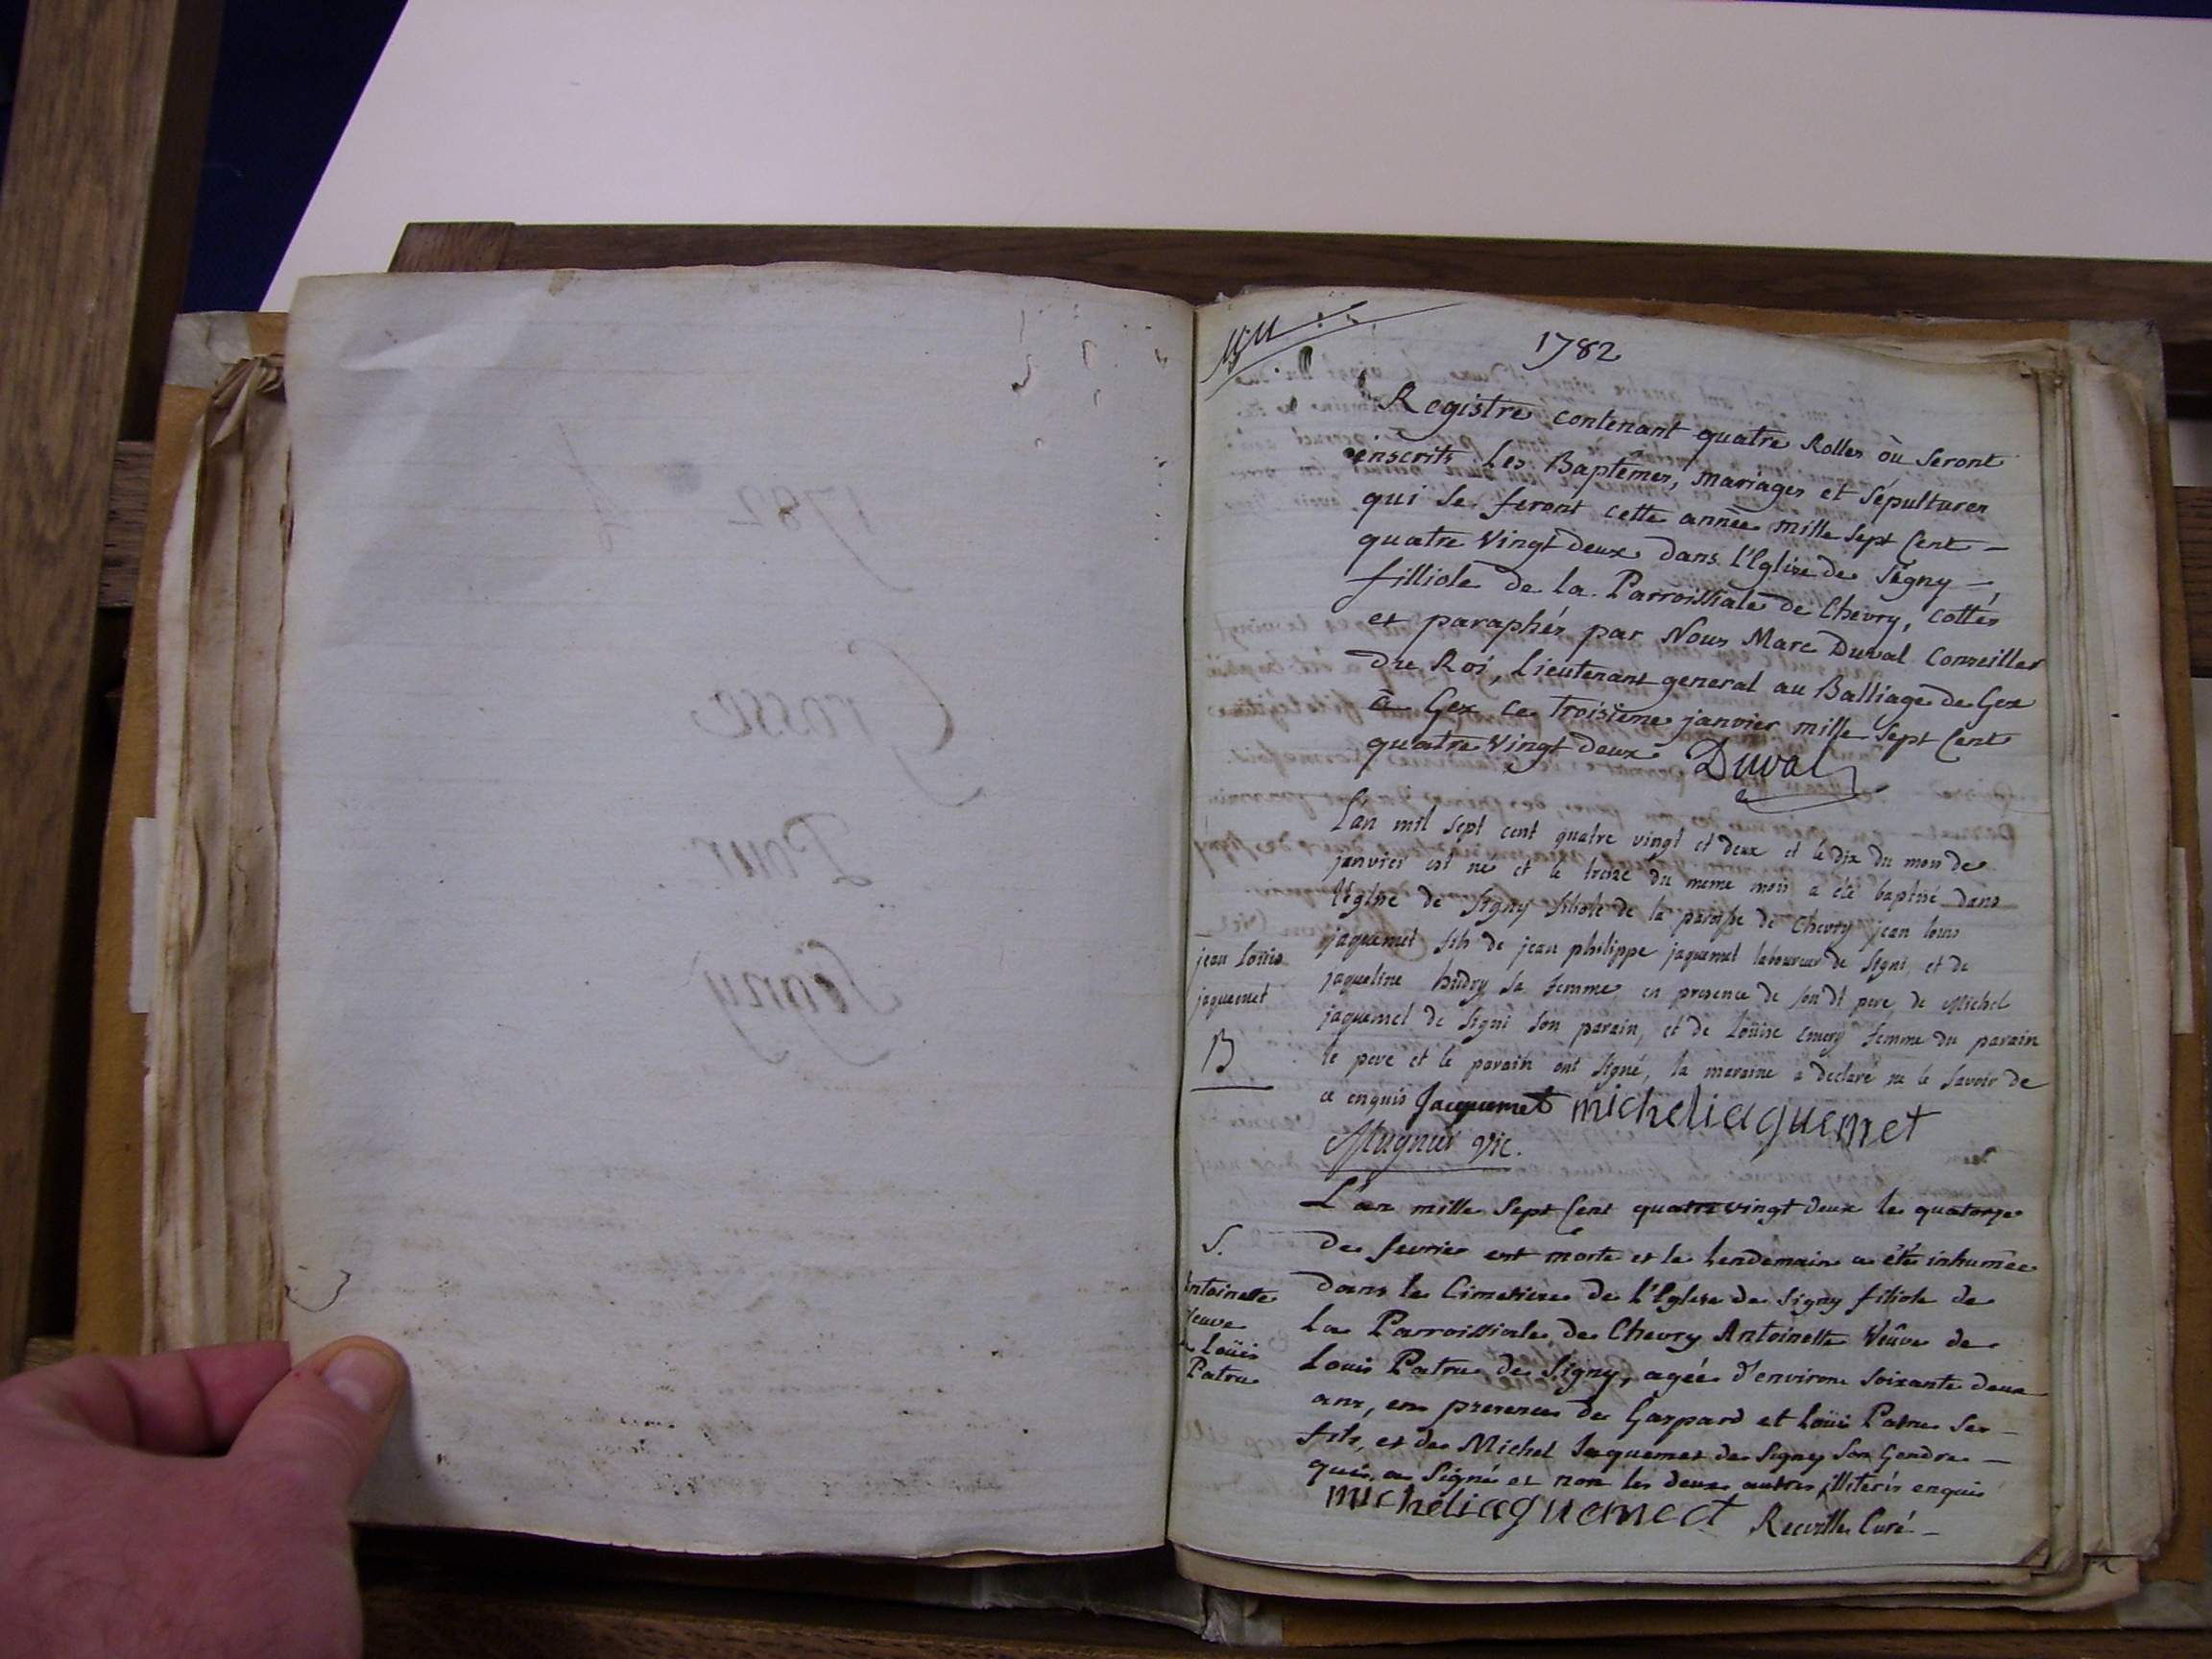 1782
Registre contenant quatre Rolles où seront
inscrits les Baptêmes, mariages et Sépultures
qui se feront cette année mille Sept Cent -
quatre Vingt Deux dans l'Eglise deSégny -,
filliole de la Parroissiale de Chevry, cottés
et paraphés par Nous Marc Duval Conseiller
du Roi, Lieutenant general au Balliage de Gex
à Gex ce troisième janvier mille Sept Cent
quatre Vingt Deux Duval
L'an mil sept cent quatre vingt et deux et le dix du mois de
janvier est né et le treize du meme mois a été baptisé dans
l'église de Signy filiole de la paroisse de Chevry jean louis
jaquemet fils de jean philippe jaquemet laboureur de Signi, et de
jaqueline hudry sa femme, en presence de son dt pere, de Michel
jaquemet de Signi son parain, et de Loüise emery femme du parain
le pere et le parain ont signé, la maraine a declaré ne le savoir de
ce enquis Jacquemet micheliaquemet
Mugnier vic.
jean Loüis
jaquemet
B
L'an mille Sept Cent quatre vingt deux le quatorze
de fevrier est morte et le lendemain a été inhumée
dans le Cimetiere de l'Eglise de Signy filiole de
la Parroissiale de Chevry Antoinette Veûve de
Louis Patru de Signy, agée d'environ soixante deux
ans, en presence de Gaspard et Loüis Patru ses -
fils, et de Michel Jaquemet de Signy son Gendre -
qui a signé et non les deux autres illiterés enquis
micheliaquemet Curé -
S.
Antoinette
Veuve
de Loüis
Patru
1782
Grosse
Pour
Segny